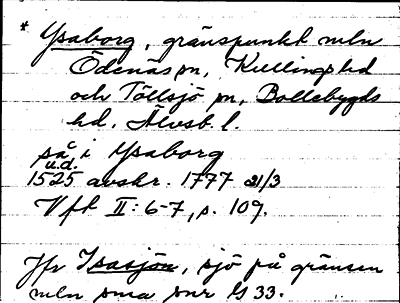 * Ysaborg, gränspunkt mln
Ödenäs sn, Kullings hd
och Töllsjö sn, Bollebygds
hd, Älvsb. l.
så i Ysaborg
u.d.
1525 avskr. 1777 21/3
Vft II: 6-7, s. 109.
Jfr Isasjön, sjö på gränsen
mln sma snr G 33.